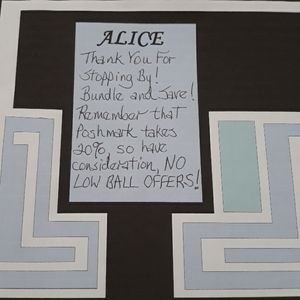 ALICE
Thank You For
Stopping By!
Bundle and Save!
Remember that
Poshmark takes
20%, so have
consideration, NO
LOW BALL OFFERS!